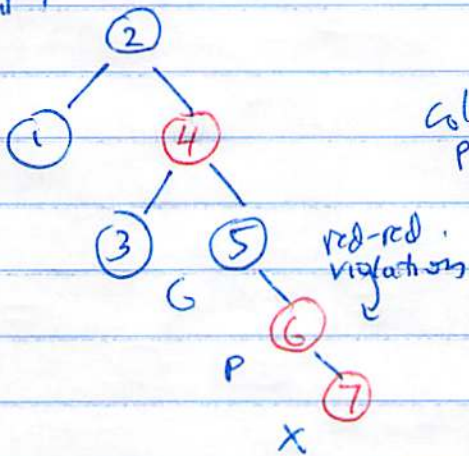 2
1
4
3
5
red-red
violations
G
6
P
7
X